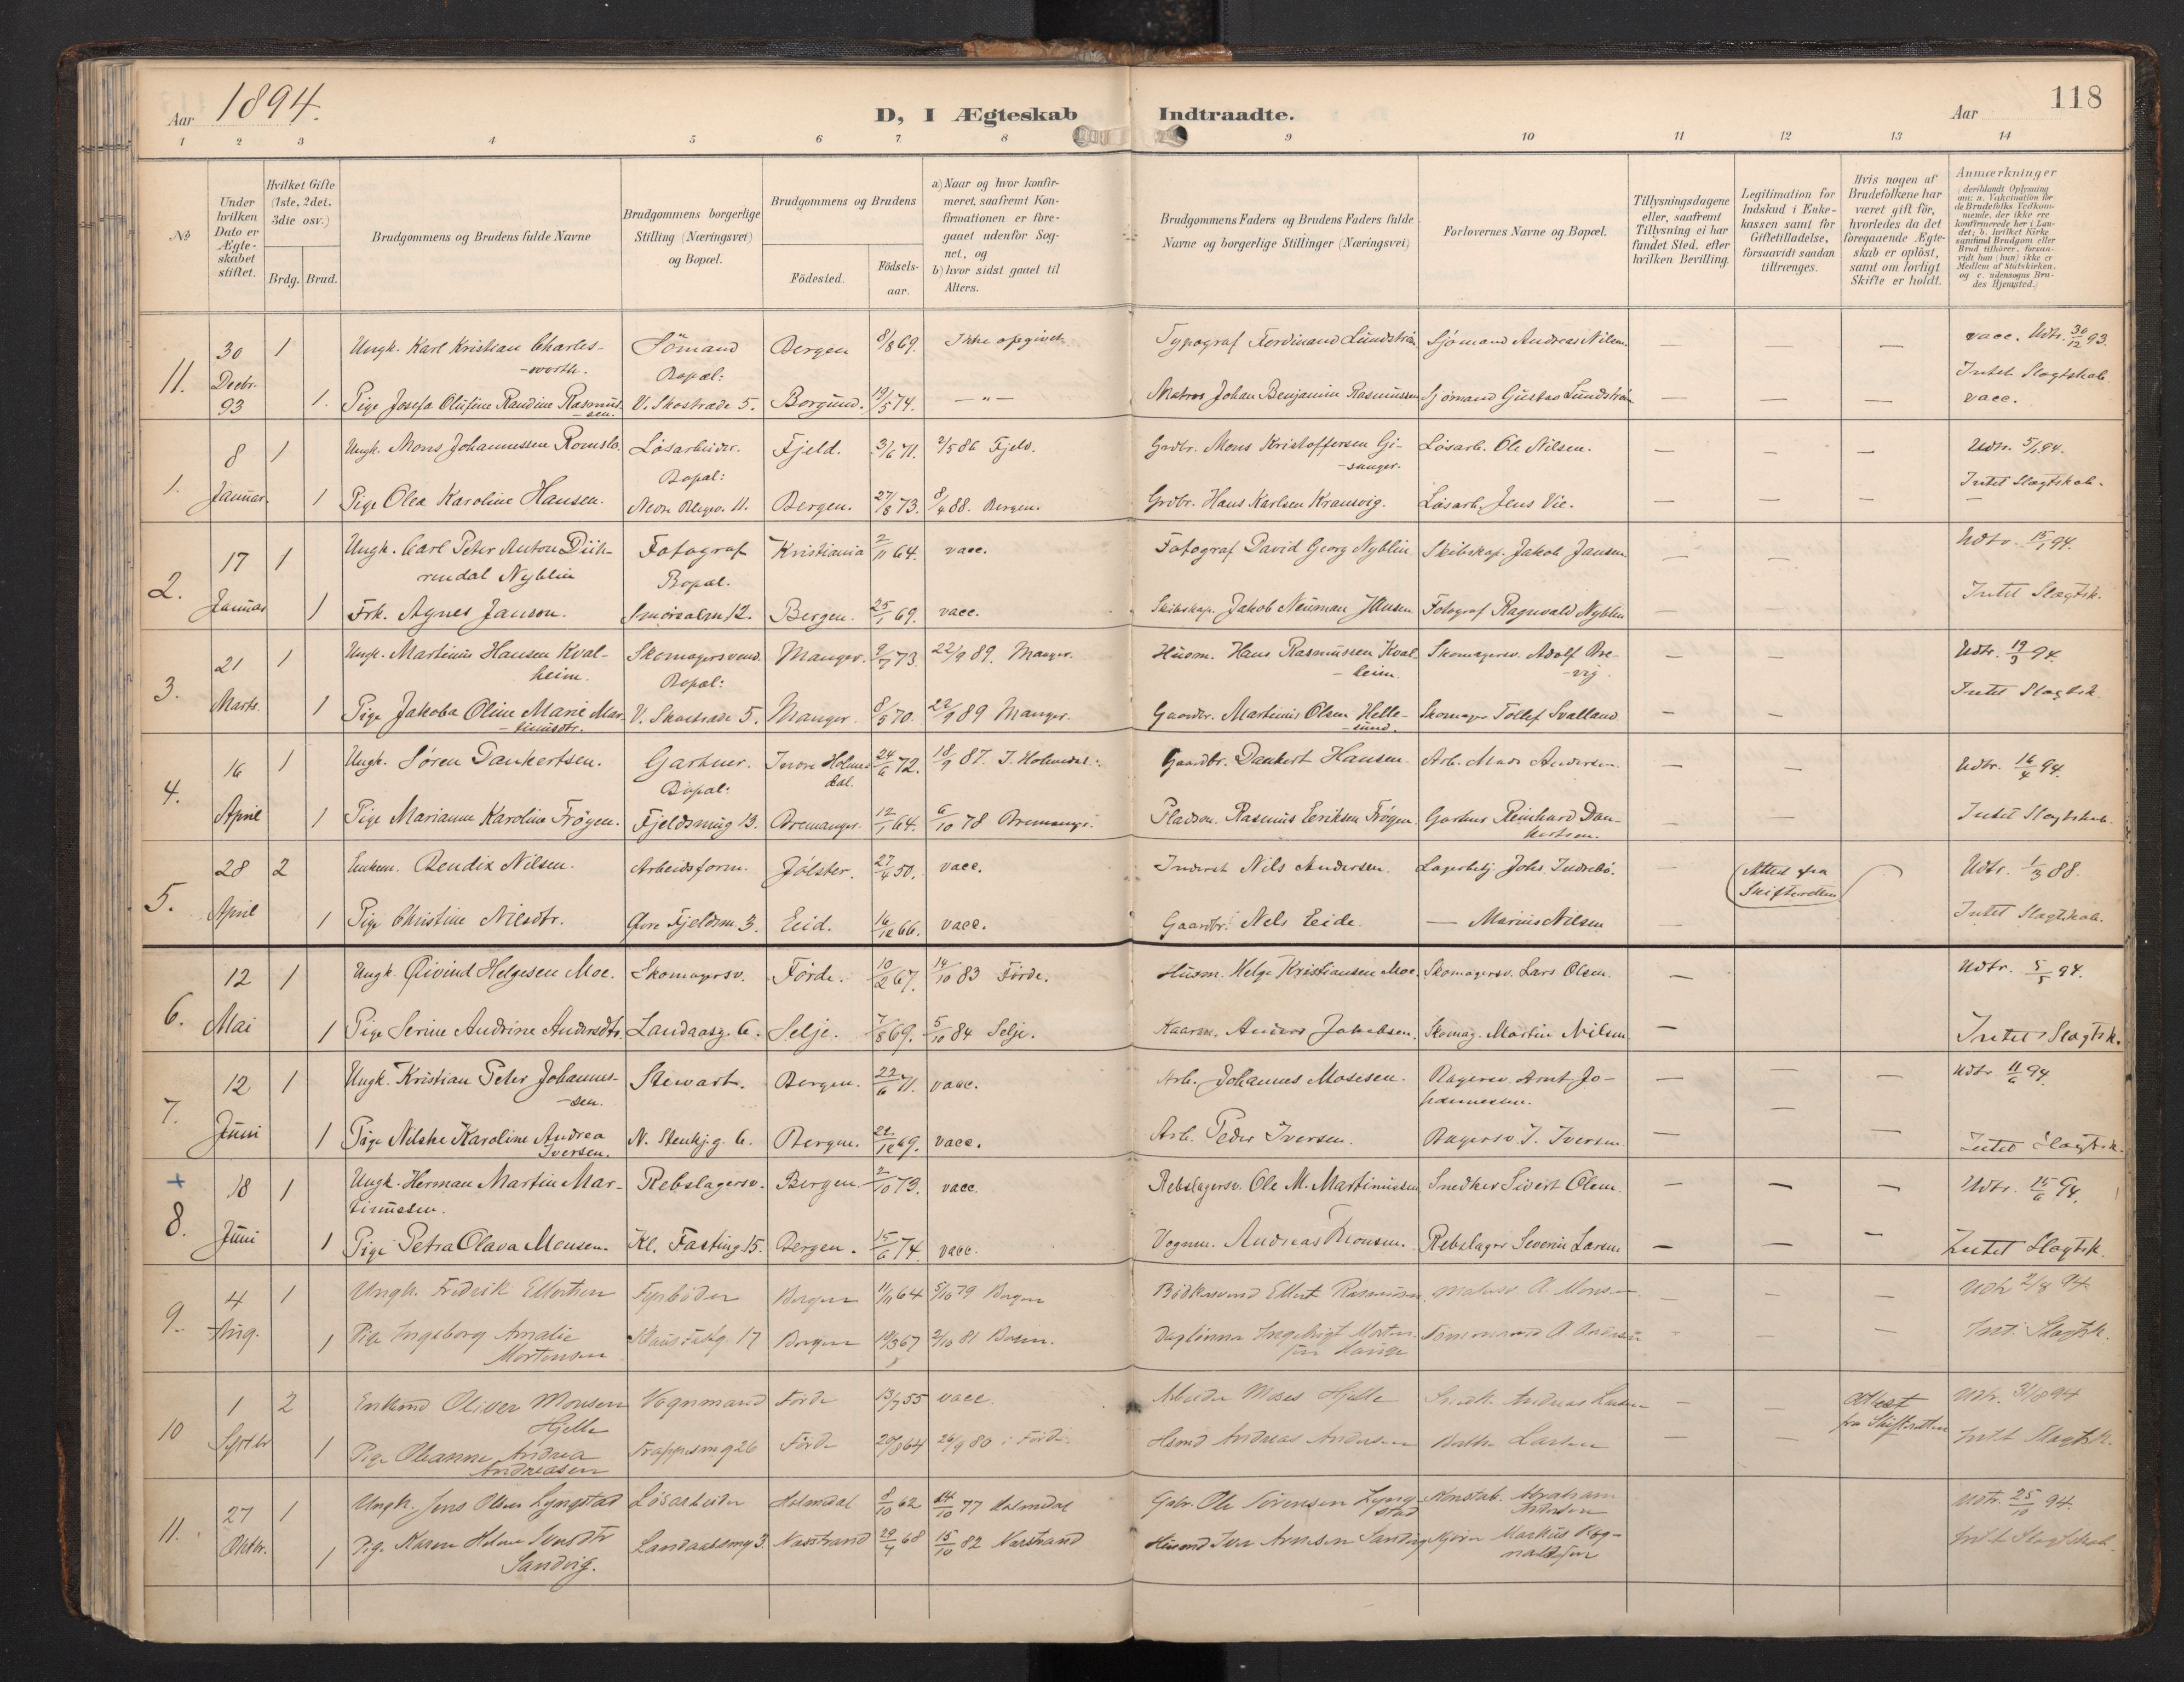 Aar 1894.
D, I Ægteskab Indtraadte.
Aar
118
1 2 3 4 5 6 7. 8 9 10 11 12 13 14
No
Under hvilken Dato er Ægteskabet stiftet.
Hvilket Gifte (1ste, 2det, 3die osv.)
Brdg. Brud.
Brudgommens og Brudens fulde Navne
Brudgommens borgerlige Stilling (Næringsvei) og Bopæl.
Brudgommens og Brudens
Födested.
Födselsaar.
a) Naar og hvor konfirmeret, saafremt Konfirmationen er foregaaet udenfor Sognet, og
b) hvor sidst gaaet til Alters.
Brudgommens Faders og Brudens Faders fulde Navne og borgerlige Stillinger (Næringsvei)
Forlovernes Navne og Bopæl.
Tillysningsdagene eller, saafremt Tillysning ei har fundet Sted, efter hvilken Bevilling.
Legitimation for Indskud i Enkekassen samt for Giftetilladelse, forsaavidt saadan tiltrænges.
Hvis nogen af Brudefolkene har været gift för, hvorledes da det foregaaende Ægteskab er oplöst, samt om lovligt Skifte er holdt.
Anmærkninger (deriblandt Oplysning om: a. Vakcination for de Brudefolks Vedkommende, der ikke ere konfirmerede her i Landet; b. hvilket Kirkesamfund Brudgom eller Brud tilhörer, forsaavidt han (hun) ikke er Medlem af Statskirken, og c. udensogns Brudes Hjemsted.)
11. 30 Decbr. 93 1 Ungk. Karl Kristian Charles-worth. Sömand Bopæl: Bergen 8/8 69. Ikke opgivet. Typograf Ferdinand Lundström Sjömand Andreas Nilsen. — — — vacc. Udtr. 30/12 93.
Intet Slagtskab.
1. Pige Josefa Olufine Randine Rasmus-sen. V. Skostræde 5. Borgund. 19/5 74. — " — Matros Johan Benjamin Rasmussen Sjömand Gustav Lundström — — — vacc.
1. 8 Januar. 1 Ungk. Mons Johannessen Romslo. Løsarbeider. Bopæl: Fjeld. 3/6 71. 2/5 86 Fjeld. Grdbr. Mons Kristoffersen Gi-sanger. Løsarb. Ole Nilsen. — — — Udtr. 5/1 94.
1 Pige Olea Karoline Hansen. Bergen. 27/8 73. 8/4 88. Bergen. Grdbr. Hans Karlsen Kransvig. Løsarb. Jens Vie. — — — Intet Slagtskab.
2. 17 Januar 1 Ungk. Carl Peter Anton Düh-rendal Nyblin Fotograf Bopæl. Kristiania 2/11 64. vacc. Fotograf David Georg Nyblin Skibskap. Jakob Jansen — — Udtr. 15/1 94.
1 Frk. Agnes Janson. Smörsalm. 12. Bergen. 25/1 69. vacc. Skibskap. Jakob Neuman Jansen Fotograf Ragnvald Nyblin — Intet Slagtsk.
3. 21 Marts. 1 Ungk. Martinus Hansen Kval-heim. Skomagersvend. Bopæl: Manger. 9/7 73. 22/9 89. Manger. Husm. Hans Rasmussen Kval-heim. Skomagersv. Adolf Bre-vig. — — Udtr. 19/3 94.
1 Pige Jakoba Oline Marie Mar-tinusdtr. V. Skostræde 5. Manger. 8/5 70. 22/9 89 Manger. Gaardbr. Martinus Olsen Helle-sund. Skomager Tollef Svalland — — Intet Slagtsk.
4. 16 April 1 Ungk. Sören Dankertsen. Gartner. Bopæl: Indre Holme-dal. 24/6 72. 18/9 87. I. Holmedal. Gaardbr. Dankert Hansen. Arb. Mads Andersen. — — Udtr. 16/4 94.
1 Pige Marianne Karoline Fröyen. Fjeldsmug 13. Bremanger. 12/1 64. 6/10 78 Bremanger. Pladsm. Rasmus Eriksen Fröyen Gartner Reinhard Dan-kertsen. — — Intet Slagtskab.
5. 28 April 2 Enkem. Bendix Nilsen. Arbeidsform. Jölster. 27/4 50. vacc. Inderst Nils Andersen. Lagerbetj. Johs. Indrebö. — Attest fra Skifteretten Udtr. 1/3 88.
1 Pige Christine Nilsdtr. Övre Fjeldsm. 3. Eid. 16/12 66. vacc. Gaardbr. Nels Eide. — Marius Nilsen — Intet Slagtskab.
6. 12 Mai 1 Ungk. Øivind Helgesen Moe. Skomagersv. Förde. 10/2 67. 14/10 83 Förde. Husm. Helge Kristiansen Moe. Skomagersv. Lars Olsen. — Udtr. 5/5 94.
1 Pige Serine Andrine Andersdtr. Landaasg. 6. Selje. 7/8 69. 5/10 84 Selje. Kaarm. Anders Jakobsen. Skomag. Martin Nilsen — Intet Slagtsk.
7. 12 Juni 1 Ungk. Kristian Peter Johannes-sen. Stewart. Bergen. 22/6 71. vacc. Arb. Johannes Mosesen. Bagersv. Arnt Jo-hannesen. — — — Udtr. 11/6 94.
1 Pige Nilske Karoline Andrea Iversen. N. Stenkj.g. 6. Bergen. 22/12 69. vacc. Arb. Peder Iversen. Bagersv. I. Iversen. — — — Intet Slagtsk.
+
8. 18 Juni 1 Ungk. Herman Martin Mar-tinussen. Rebslagersv. Bergen. 2/10 73. vacc. Rebslagersv. Ole M. Martinussen Snedker Sivert Olsen. — — — Udtr. 15/6 94.
1 Pige Petra Olava Monsen. Kl. Fasting 15. Bergen. 15/6 74. vacc. Vognm. Andreas Monsen. Rebslager Severin Larsen — — — Intet Slagtsk.
9. 4 Aug. 1 Ungk. Fredrik Ellertsen Fyrböder Bergen 11/11 64 5/10 79 Bergen Bödkersvend Ellert Rasmussen Malersv. A. Monsen — — — Udtr 2/8 94
1 Pige Ingeborg Amalie Mortensen 17 Bergen 67 2/10 81 Bergen. Daglönner Ingebrigt Morten-sen Lange Tömmermand A. Andersen — — — Int. Slagtsk.
10 1 Septbr 2 Enkemd Oliver Monsen Hjelle Vognmand Förde 13/7 55 vacc. Arbeider Moses Hjelle Andreas Larsen — — Attest fra Skifteretten Udtr. 31/8 94
1 Pige Oleanna Andrea Andreasen Trappesmg 26 Förde 20/8 64 26/9 80 i Förde Hsmd Andreas Andersen Berthe Larsen — — Intet Slagtsk.
11. 27 Oktbr. 1 Ungk. Jens Olsen Lyngstad Lösarbeider Holmedal 8/10 62 14/10 77 Holmedal Gabr. Ole Sörensen Lyng-stad Konstab. Abraham Andersen Udtr. 25/10 94.
1 Pige Karen Helene Iversdtr Sandvig. Landaassmg 3. Nastrand 29/4 68 15/10 82 Nastrand Husmd Iver Arnesen Sandvig Markus Rog-naldsen Intet Slagtskab.